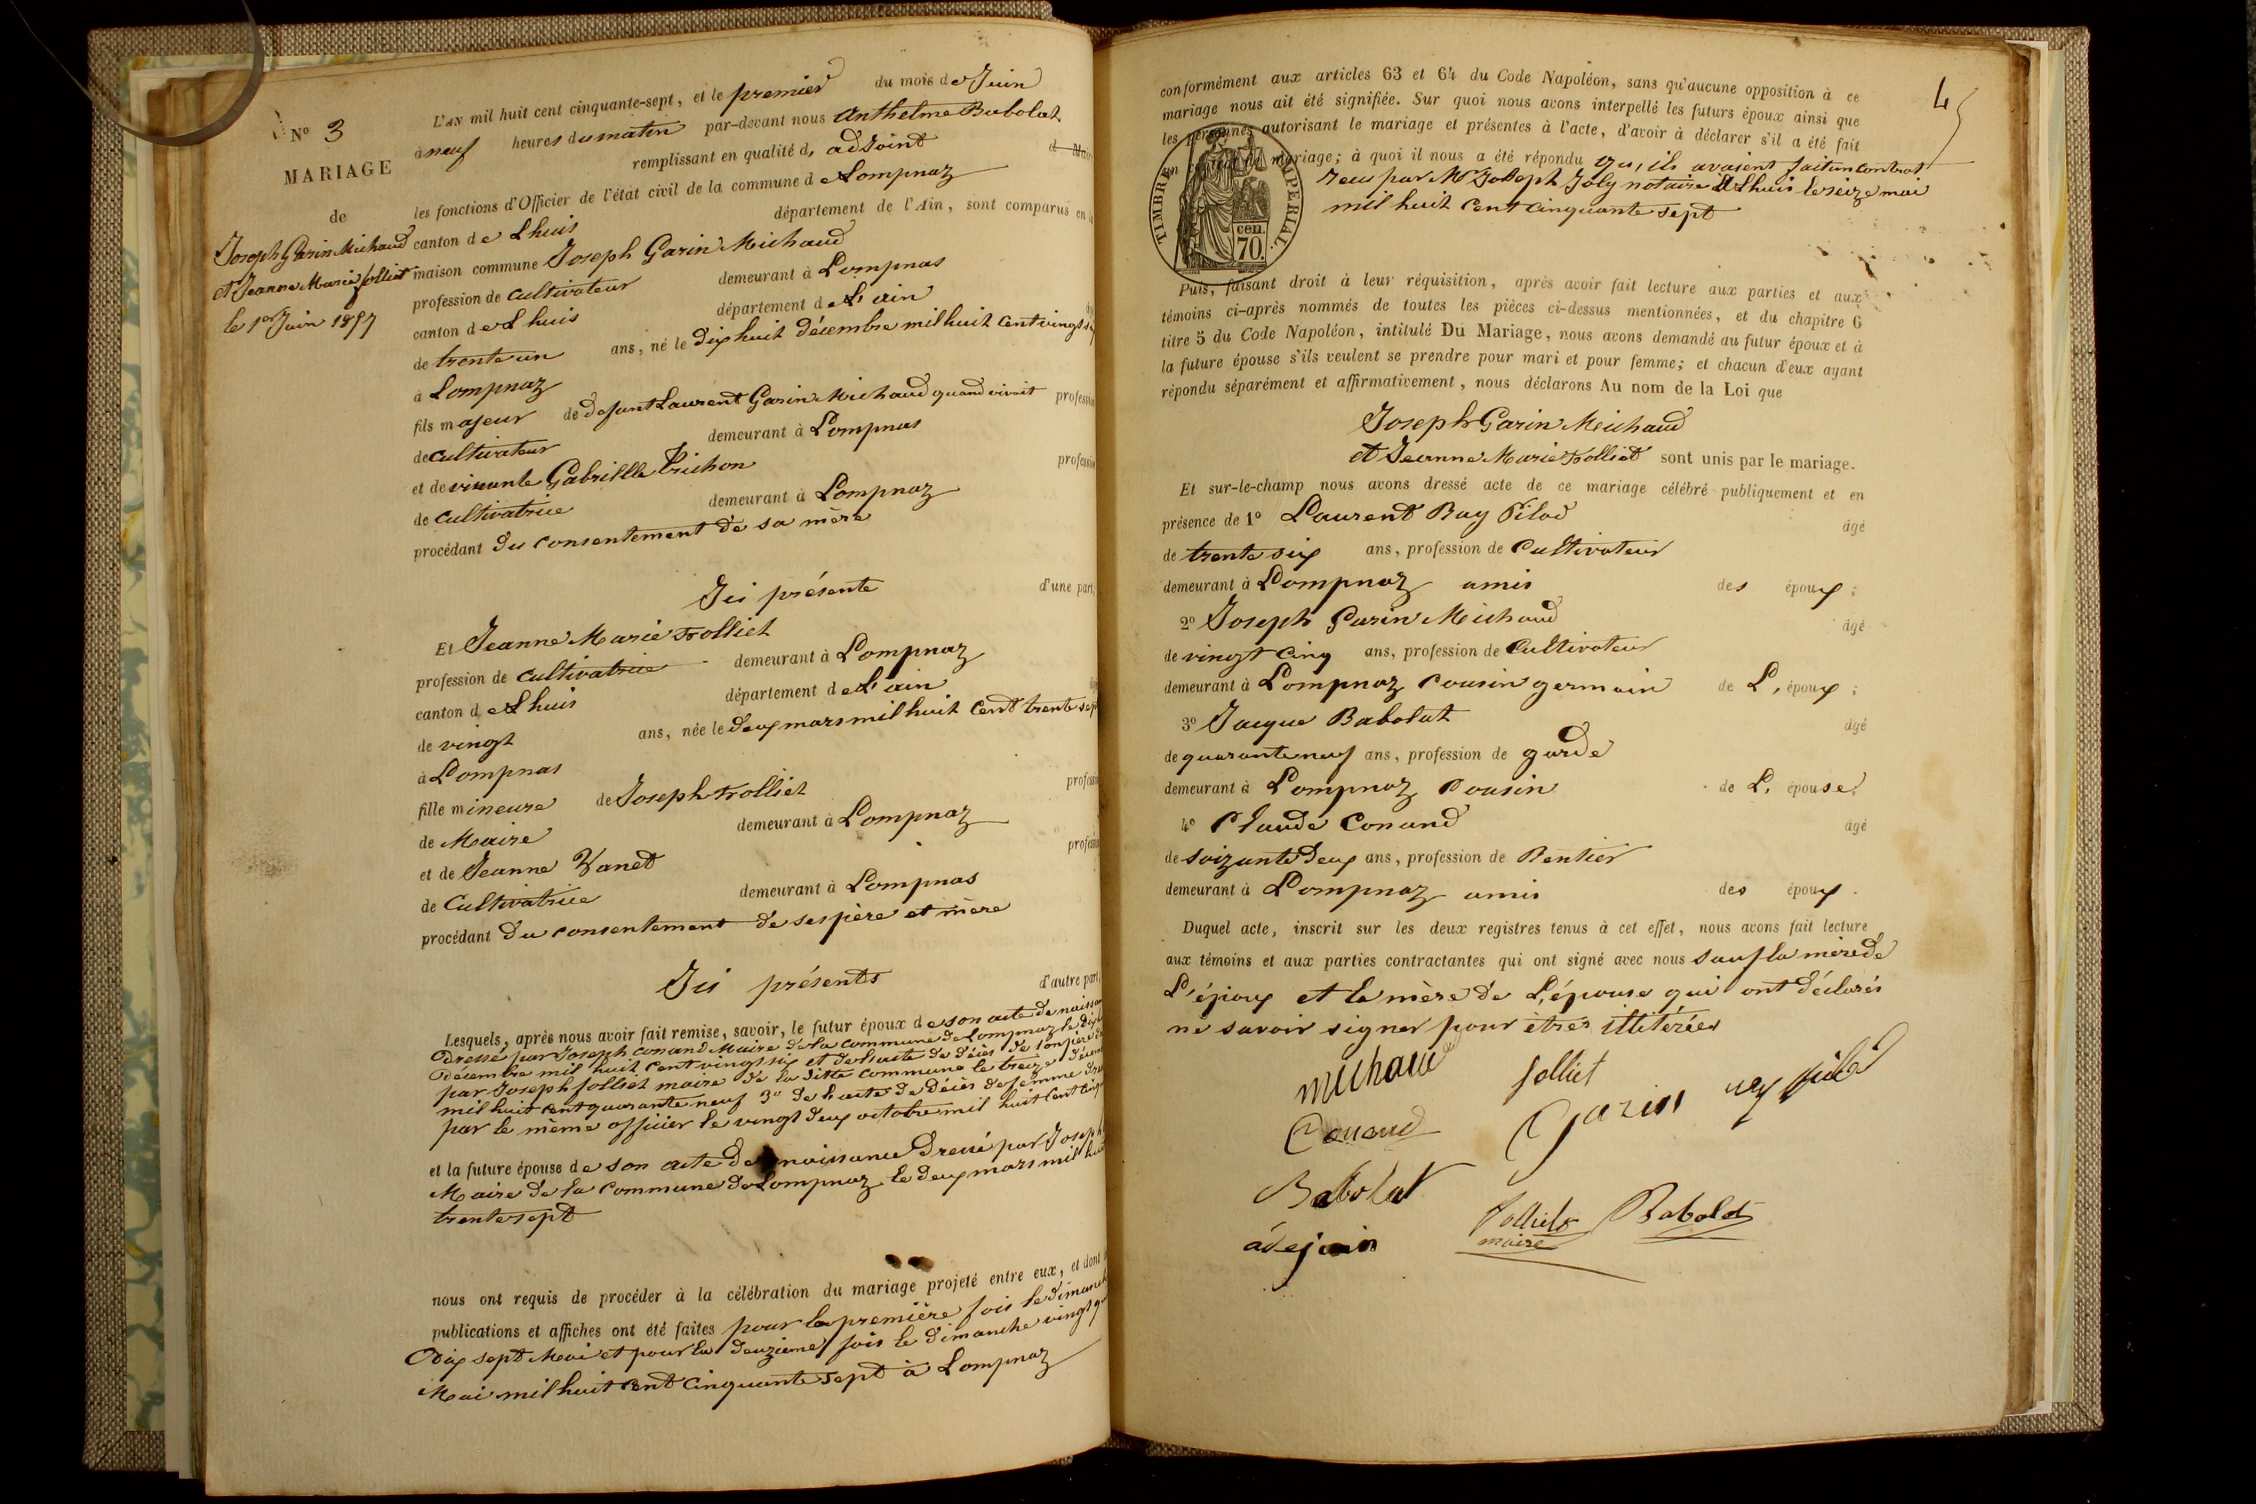 N° 3
MARIAGE
de
Joseph Garin Michaud
et Jeanne Marie Jolliet
le 1er Juin 1857
L'AN mil huit cent cinquante-sept, et le premier du mois de Juin
à neuf heures du matin par-devant nous Anthelme Babolat
remplissant en qualité d, adjoint
les fonctions d'Officier de l'état civil de la commune de Lompnaz
canton de Lhuis département de l'Ain, sont comparus en
maison commune Joseph Garin Michaud
profession de cultivateur demeurant à Lompnas
canton de Lhuis département de L'ain
de trente un ans, né le dix huit décembre mil huit cent vingt
à Lompnaz
fils majeur de defunt Laurent Garin Michaud quand vivait profession
de cultivateur demeurant à Lompnas
et de vivante Gabrielle Trichon profession
de cultivatrice demeurant à Lompnaz
procédant du consentement de sa mère
Ici présente d'une part,
Et Jeanne Marie Trolliet
profession de cultivatrice demeurant à Lompnaz
canton de Lhuis département de L'ain
de vingt ans, née le deux mars mil huit cent trente sept
à Lompnas
fille mineure de Joseph Trolliet
de Maire demeurant à Lompnaz
et de Jeanne Vanet
de Cultivatrice demeurant à Lompnas
procédant du consentement de ses père et mère
Ici présents d'autre part,
Lesquels, après nous avoir fait remise, savoir, le futur époux de son acte de
dressé par Joseph Conand Maire de la commune de Lompnaz le
décembre mil huit cent vingt six et de l'acte de décès de son père
par Joseph Jolliet maire de la ditte commune le treize
mil huit cent quarante neuf 3° de l'acte de décès de femme
par le même officier le vingt deux octobre mil huit cent
et la future épouse de son acte de naissance dressé par Joseph
Maire de la commune de Lompnaz le deux mars mil huit
trente sept
nous ont requis de procéder à la célébration du mariage projeté entre eux, et dont
publications et affiches ont été faites pour la première fois le dimanche
dix sept Mai et pour la deuzieme fois le dimanche vingt
Mai mil huit cent cinquante sept à Lompnaz
4
conformément aux articles 63 et 64 du Code Napoléon, sans qu'aucune opposition à ce
mariage nous ait été signifiée. Sur quoi nous avons interpellé les futurs époux ainsi que
les personnes autorisant le mariage et présentes à l'acte, d'avoir à déclarer s'il a été fait
mariage; à quoi il nous a été répondu qu, ils avaient fait un contrat
reçu par Me Joseph Joly notaire à Lhuis le seize mai
mil huit cent cinquante sept
TIMBRE IMPERIAL.
70. cen.
Puis, faisant droit à leur réquisition, après avoir fait lecture aux parties et aux
témoins ci-après nommés de toutes les pièces ci-dessus mentionnées, et du chapitre 6
titre 5 du Code Napoléon, intitulé Du Mariage, nous avons demandé au futur époux et à
la future épouse s'ils veulent se prendre pour mari et pour femme; et chacun d'eux ayant
répondu séparément et affirmativement, nous déclarons Au nom de la Loi que
Joseph Garin Michaud
et Jeanne Marie Trolliet sont unis par le mariage.
Et sur-le-champ nous avons dressé acte de ce mariage célébré publiquement et en
présence de 1° Laurent Ray Pilod âgé
de trente six ans, profession de Cultivateur
demeurant à Lompnaz amis des époux ;
2° Joseph Garin Michaud âgé
de vingt cinq ans, profession de Cultivateur
demeurant à Lompnaz Cousin germain de L, époux ;
3° Jacque Babolat âgé
de quarante neuf ans, profession de garde
demeurant à Lompnaz Cousin de L, épouse;
4° Claude Conand âgé
de soizante deux ans, profession de Rentier
demeurant à Lompnaz amis des époux.
Duquel acte, inscrit sur les deux registres tenus à cet effet, nous avons fait lecture
aux témoins et aux parties contractantes qui ont signé avec nous sauf la mère de
L'époux et la mère de L,épouse qui ont déclarés
ne savoir signer pour êtres illitérées
Michaud Jolliet
Conand Garin rey pilod
Babolat
adejoin Jolliet Babolat
maire